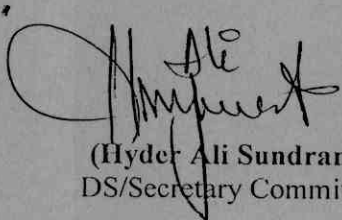 Ali
(Hyder Ali Sundran
DS/Secretary Commit